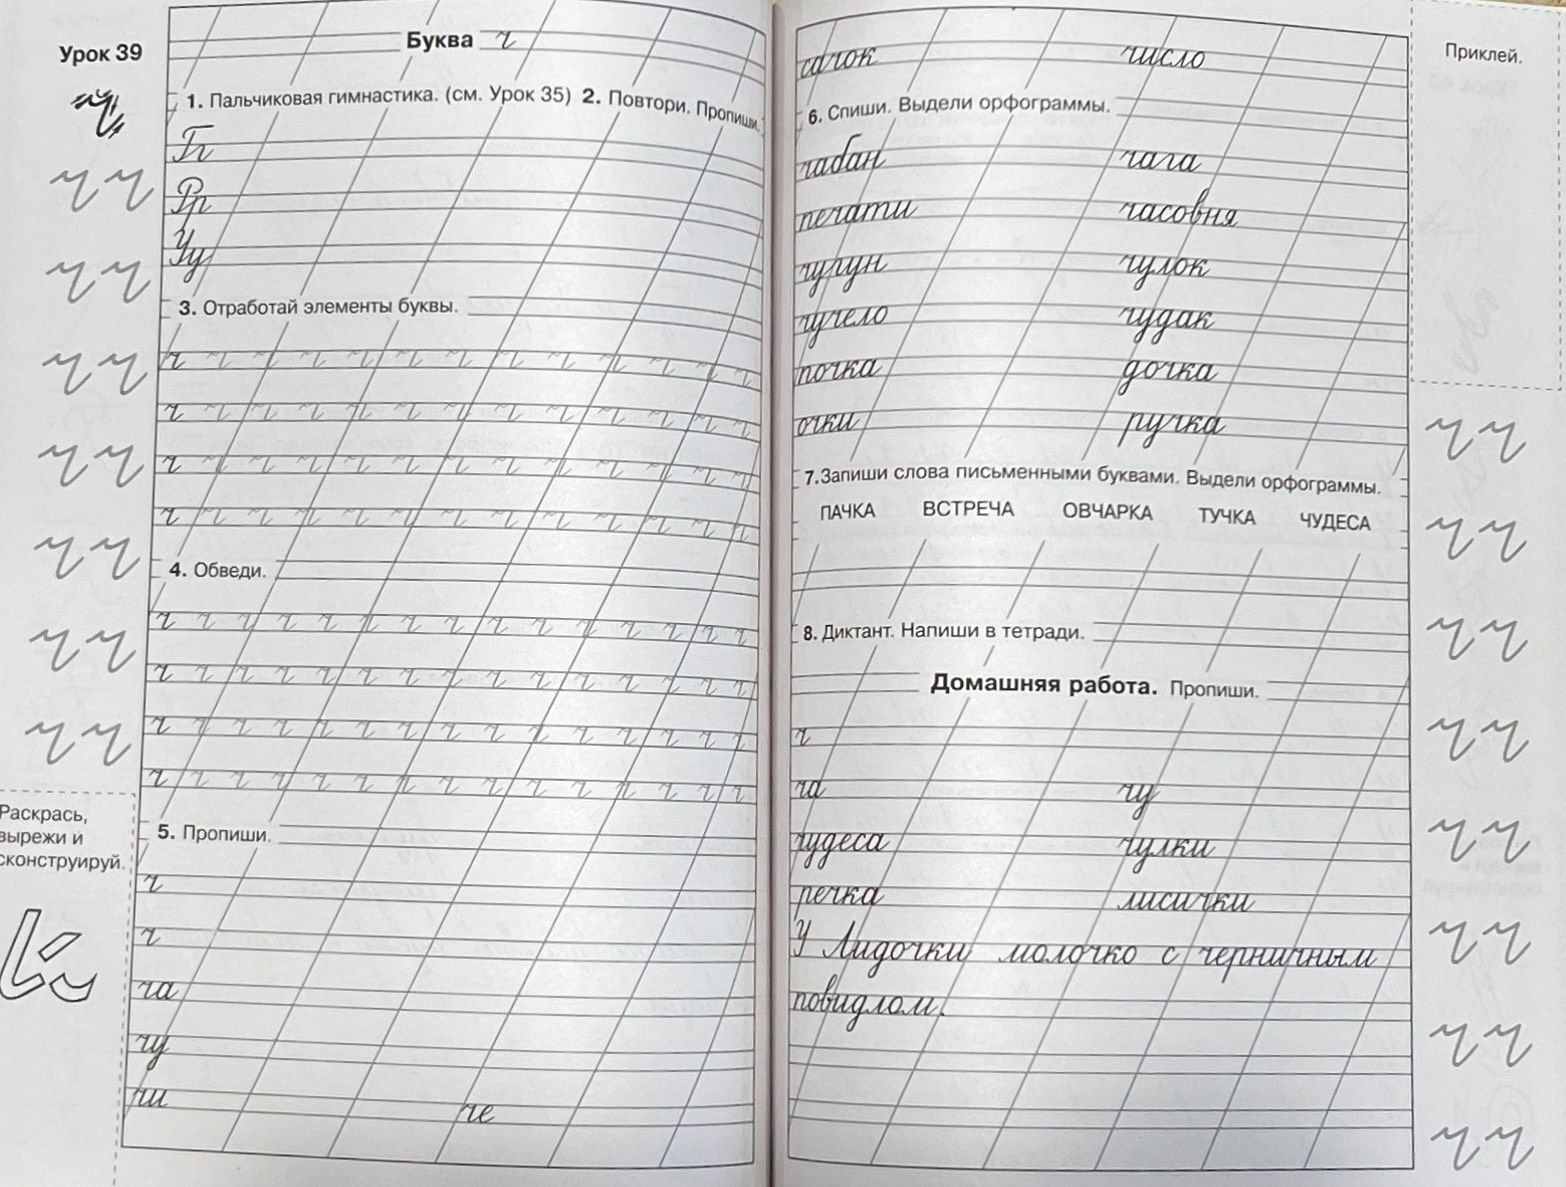 Урок 39
Буква ч
1. Пальчиковая гимнастика. (см. Урок 35) 2. Повтори. Пропиши.
Гг
Рр
Уу
3. Отработай элементы буквы.
ч ч ч ч ч ч ч ч ч ч ч ч ч
ч ч ч ч ч ч ч ч ч ч ч ч ч
ч ч ч ч ч ч ч ч ч ч ч ч ч
ч ч ч ч ч ч ч ч ч ч ч ч ч
4. Обведи.
ч ч ч ч ч ч ч ч ч ч ч ч ч ч ч
ч ч ч ч ч ч ч ч ч ч ч ч ч ч ч
ч ч ч ч ч ч ч ч ч ч ч ч ч ч ч
ч ч ч ч ч ч ч ч ч ч ч ч ч ч ч
5. Пропиши.
ч
ч
ча
чу
чи че
ч
ч ч
ч ч
ч ч
ч ч
ч ч
ч ч
ч ч
Раскрась,
вырежи и
сконструируй.
сачок число
6. Спиши. Выдели орфограммы.
чабан чага
печати часовня
чугун чулок
чучело чудак
почка дочка
очки ручка
7.Запиши слова письменными буквами. Выдели орфограммы.
ПАЧКА ВСТРЕЧА ОВЧАРКА ТУЧКА ЧУДЕСА
8. Диктант. Напиши в тетради.
Домашняя работа. Пропиши.
ч
ча чу
чудеса чулки
речка лисички
У Лидочки молочко с черничным
повидлом.
Приклей.
ч ч
ч ч
ч ч
ч ч
ч ч
ч ч
ч ч
ч ч